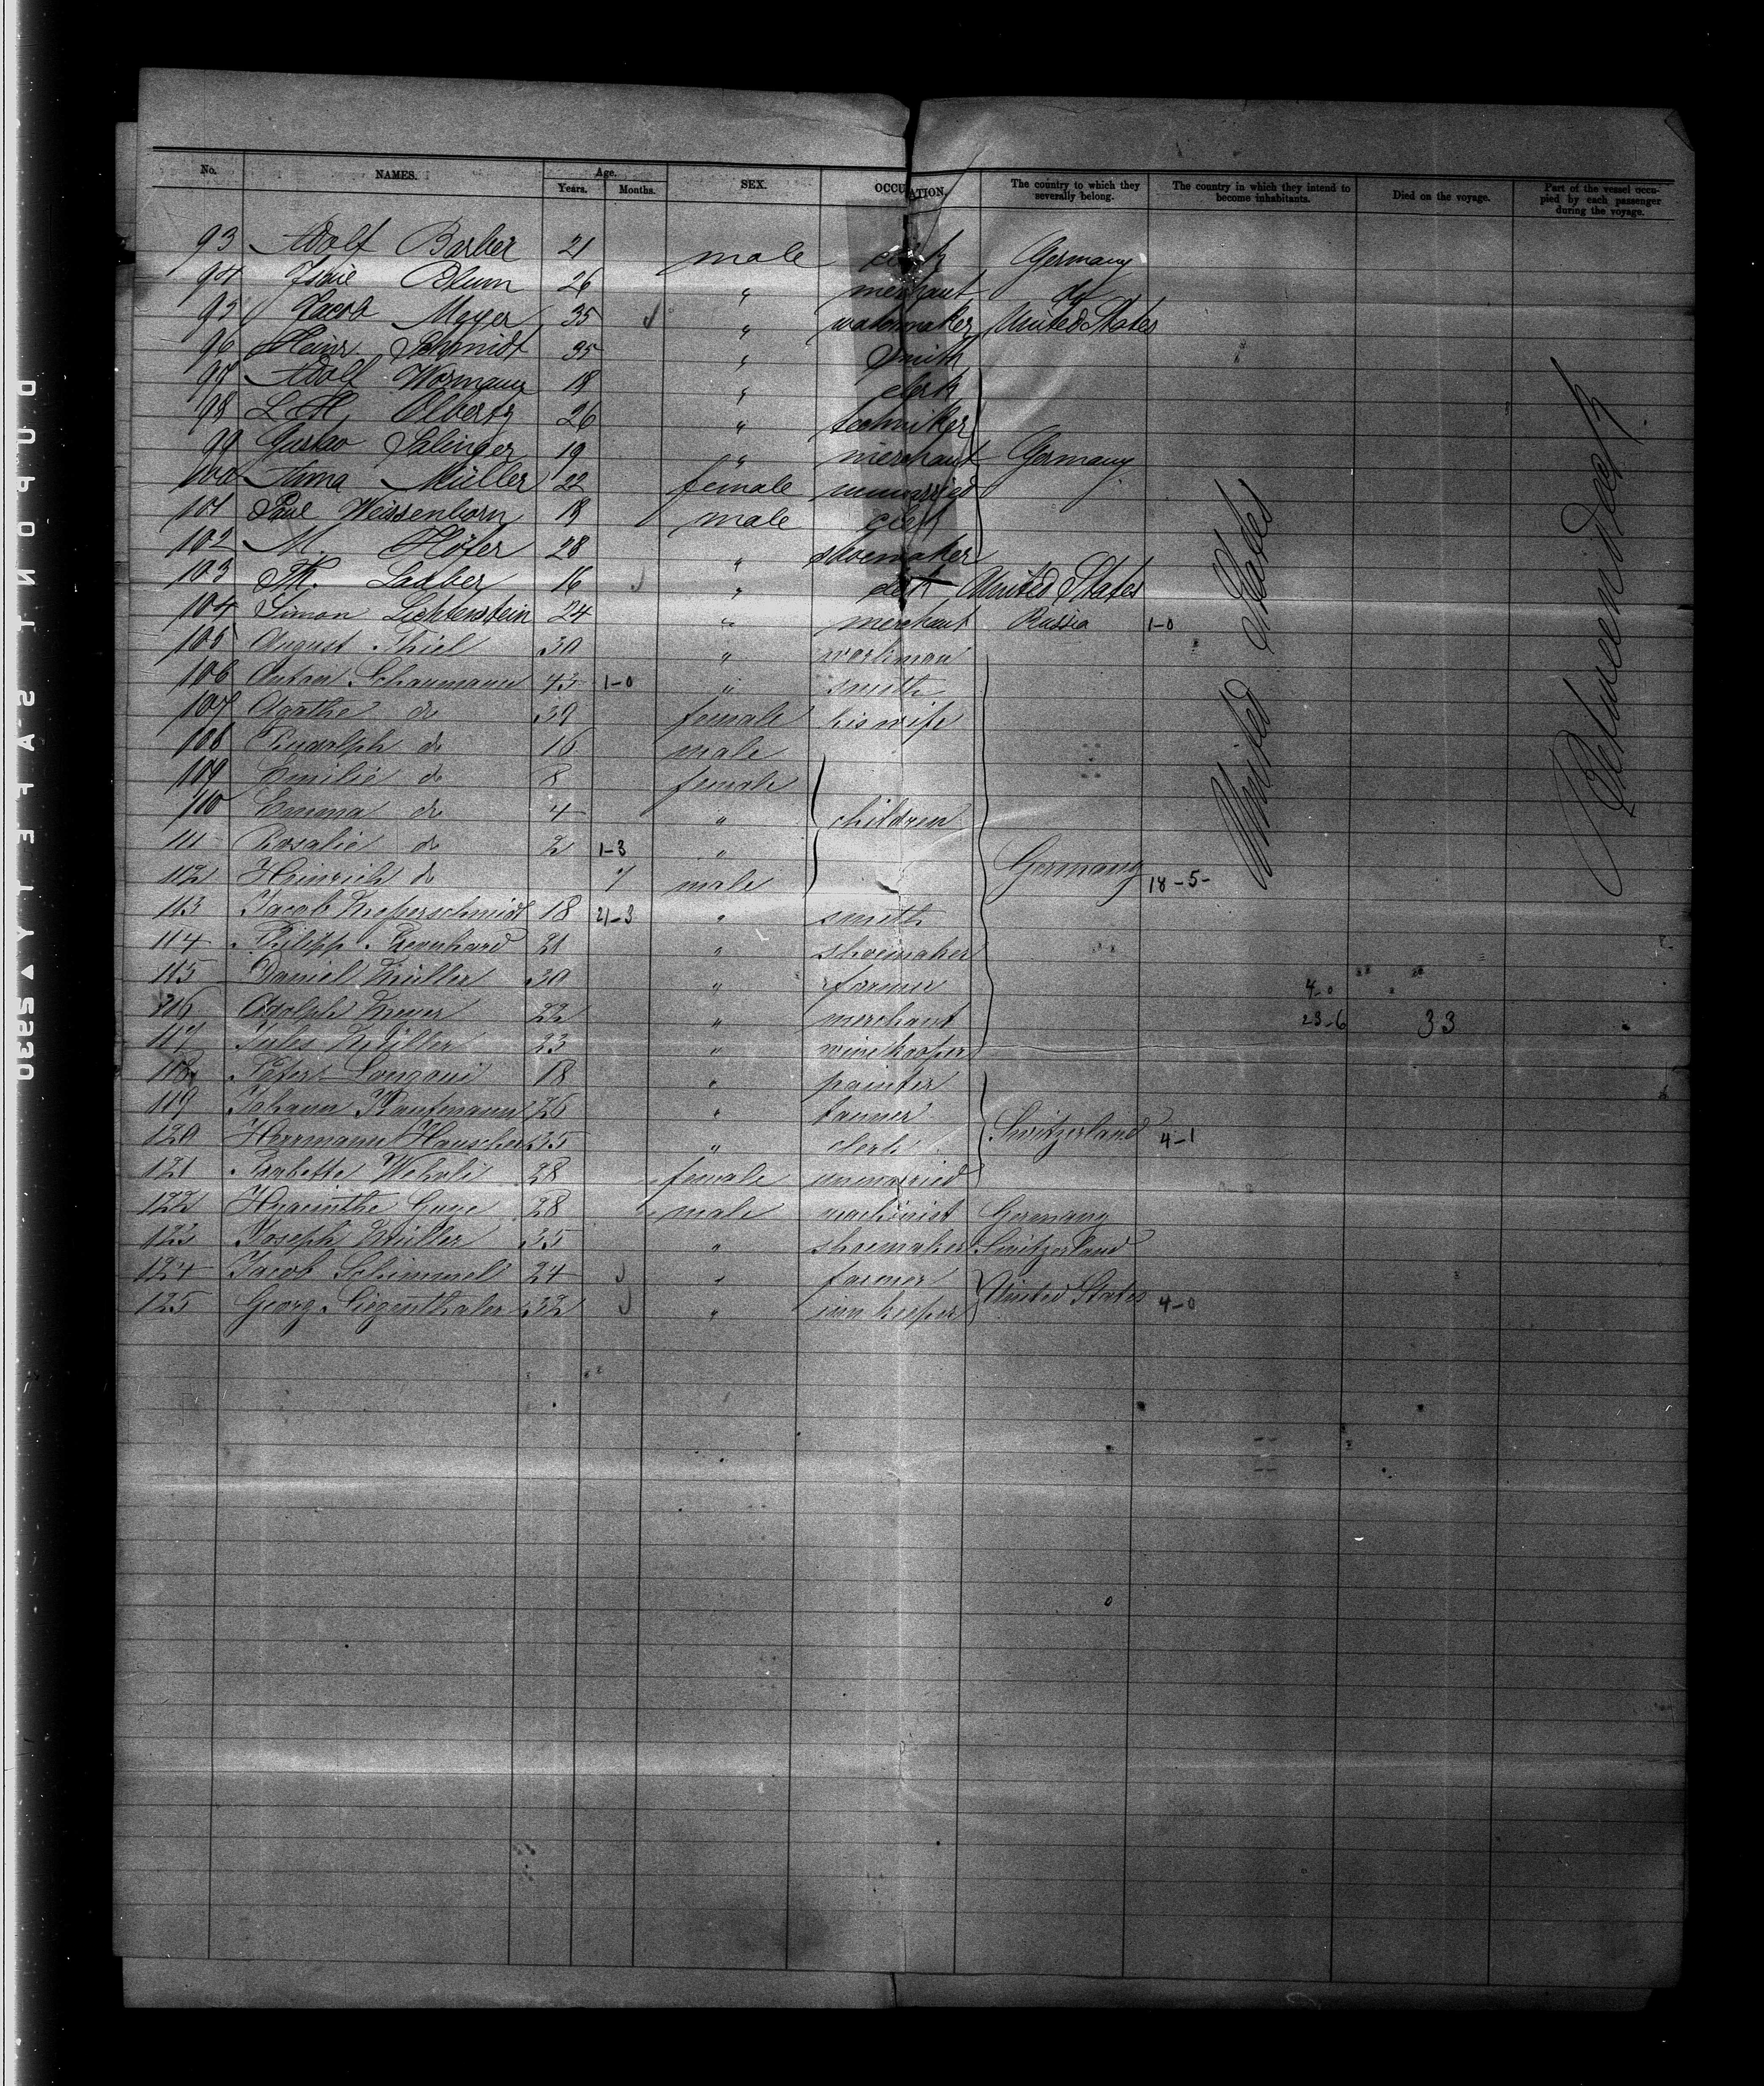 No. NAMES. Age. Years. Months. SEX. OCCUPATION. The country to which they severally belong. The country in which they intend to become inhabitants. Died on the voyage. Part of the vessel occupied by each passenger during the voyage.
93 Adolf Barber 21 male clerk Germany
94 Blum 26 " merchant do
95 Jacob Meyer 35 " watchmaker United States
96 Heinr Schmidt 35 " smith
97 Adolf 18 " clerk
98 L H Olbertz 26 " techniker
99 Gustav Salinger 19 " merchant Germany
100 Anna Müller 22 female unmarried
101 Paul Weissenborn 18 male clerk
102 M. Höfer 28 " shoemaker
103 Th. Lauber 16 " clerk United States
104 Simon Lichtenstein 24 " merchant Russia 1-0
105 August Thiel 30 " workman
106 Anton Schaumann 43 1-0 " smith
107 Agathe do 39 female his wife
108 Rudolph do 16 male
109 Emilie do 8 female
110 Emma do 4 " children
111 Rosalie do 2 1-3 "
112 Heinrich do 7 male Germany 18-5-
113 Jacob 18 21-3 " smith
114 Philipp Leonhard 21 " shoemaker
115 Daniel Müller 30 " farmer 4-0
116 Adolph Meyer 22 " merchant 23-6 33
117 Jules Müller 23 "
118 Peter 18 " painter
119 Johann Kaufmann 26 " tanner
120 Herrmann Hauscher 35 " clerk Switzerland 4-1
121 Babette Wehrli 28 female unmarried
122 Hyacinthe Guye 28 male machinist Germany
123 Joseph Müller 35 " shoemaker Switzerland
124 Jacob Schimmel 24 " farmer United States
125 Georg Siegenthaler 32 " innkeeper 4-0
United States
Between deck